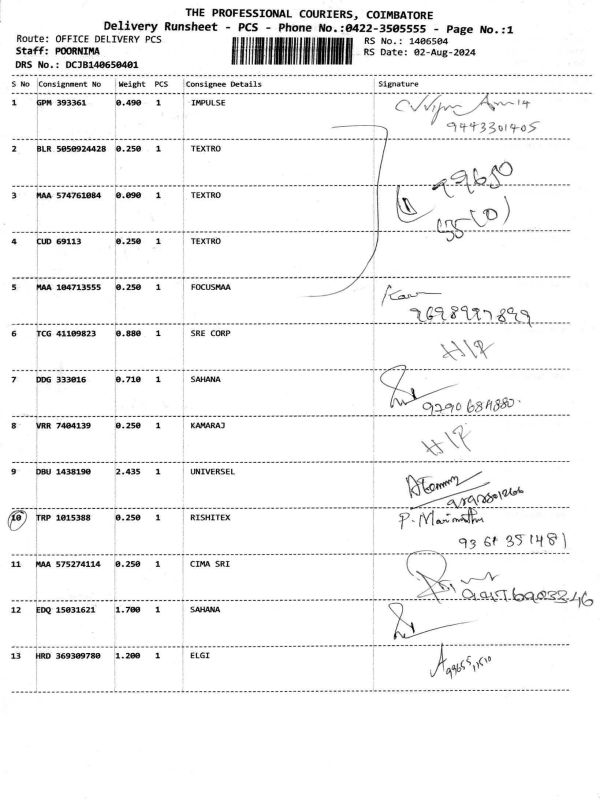 THE PROFESSIONAL COURIERS, COIMBATORE
Delivery Runsheet - PCS - Phone No.:0422-3505555 - Page No.:1
Route: OFFICE DELIVERY PCS RS No.: 1406504
Staff: POORNIMA RS Date: 02-Aug-2024
DRS No.: DCJB140650401
S No Consignment No Weight PCS Consignee Details Signature
1 GPM 393361 0.490 1 IMPULSE
9443301405
2 BLR 5050924428 0.250 1 TEXTRO
99650
3 MAA 574761084 0.090 1 TEXTRO
4 CUD 69113 0.250 1 TEXTRO
5 MAA 104713555 0.250 1 FOCUSMAA
6 TCG 41109823 0.880 1 SRE CORP
7 DDG 333016 0.710 1 SAHANA
8 VRR 7404139 0.250 1 KAMARAJ
9 DBU 1438190 2.435 1 UNIVERSEL
10 TRP 1015388 0.250 1 RISHITEX P. Marimuthu
11 MAA 575274114 0.250 1 CIMA SRI
12 EDQ 15031621 1.700 1 SAHANA
13 HRD 369309780 1.200 1 ELGI